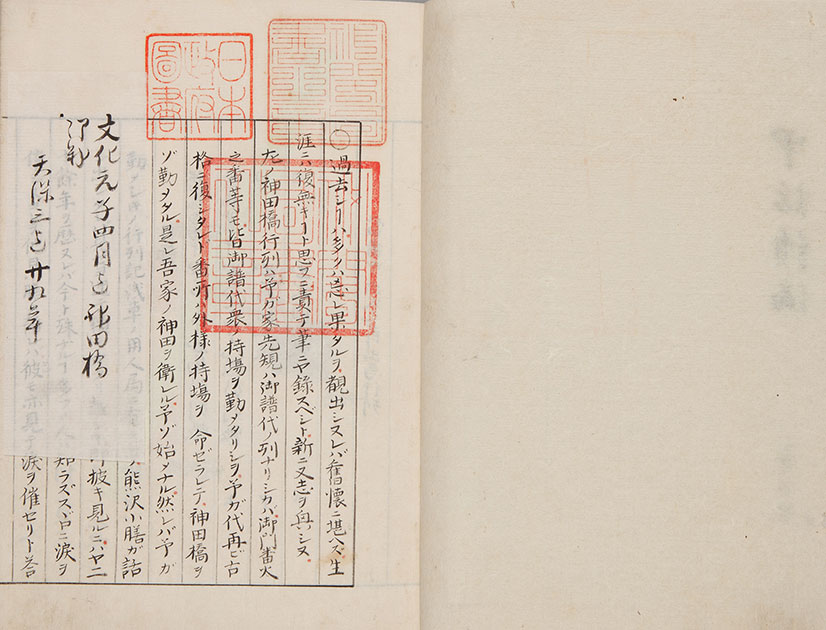 日本政府圖書
○過去シヿハ多クハ忘レ果タルヲ、覩出シヌレバ舊懷ニ堪ヘズ生
涯ニハ復無キヿト思フニ責テ筆ニヤ録スベシト新ニ又志ヲ興シヌ
左ノ神田橋行列ハ予ガ家先規ハ御譜代ノ列ナリシカバ御門番火
之番等モ皆御譜代衆ノ持場ヲ勤メタリシヲ予ガ代再ビ古
格ニ復シタレド番所ハ外様ノ持場ヲ命ゼラレテ神田橋ヲ
ゾ勤メタル是レ吾家ノ神田ヲ衛レル予ゾ始メナル然レバ予ガ
ノ熊沢小膳ガ詰
披キ見ルニハヤニ
知ラズスヾロニ涙ヲ
彼モ亦見テ涙ヲ催セリト荅
文化元子四月 神田橋
天保三 廿九年